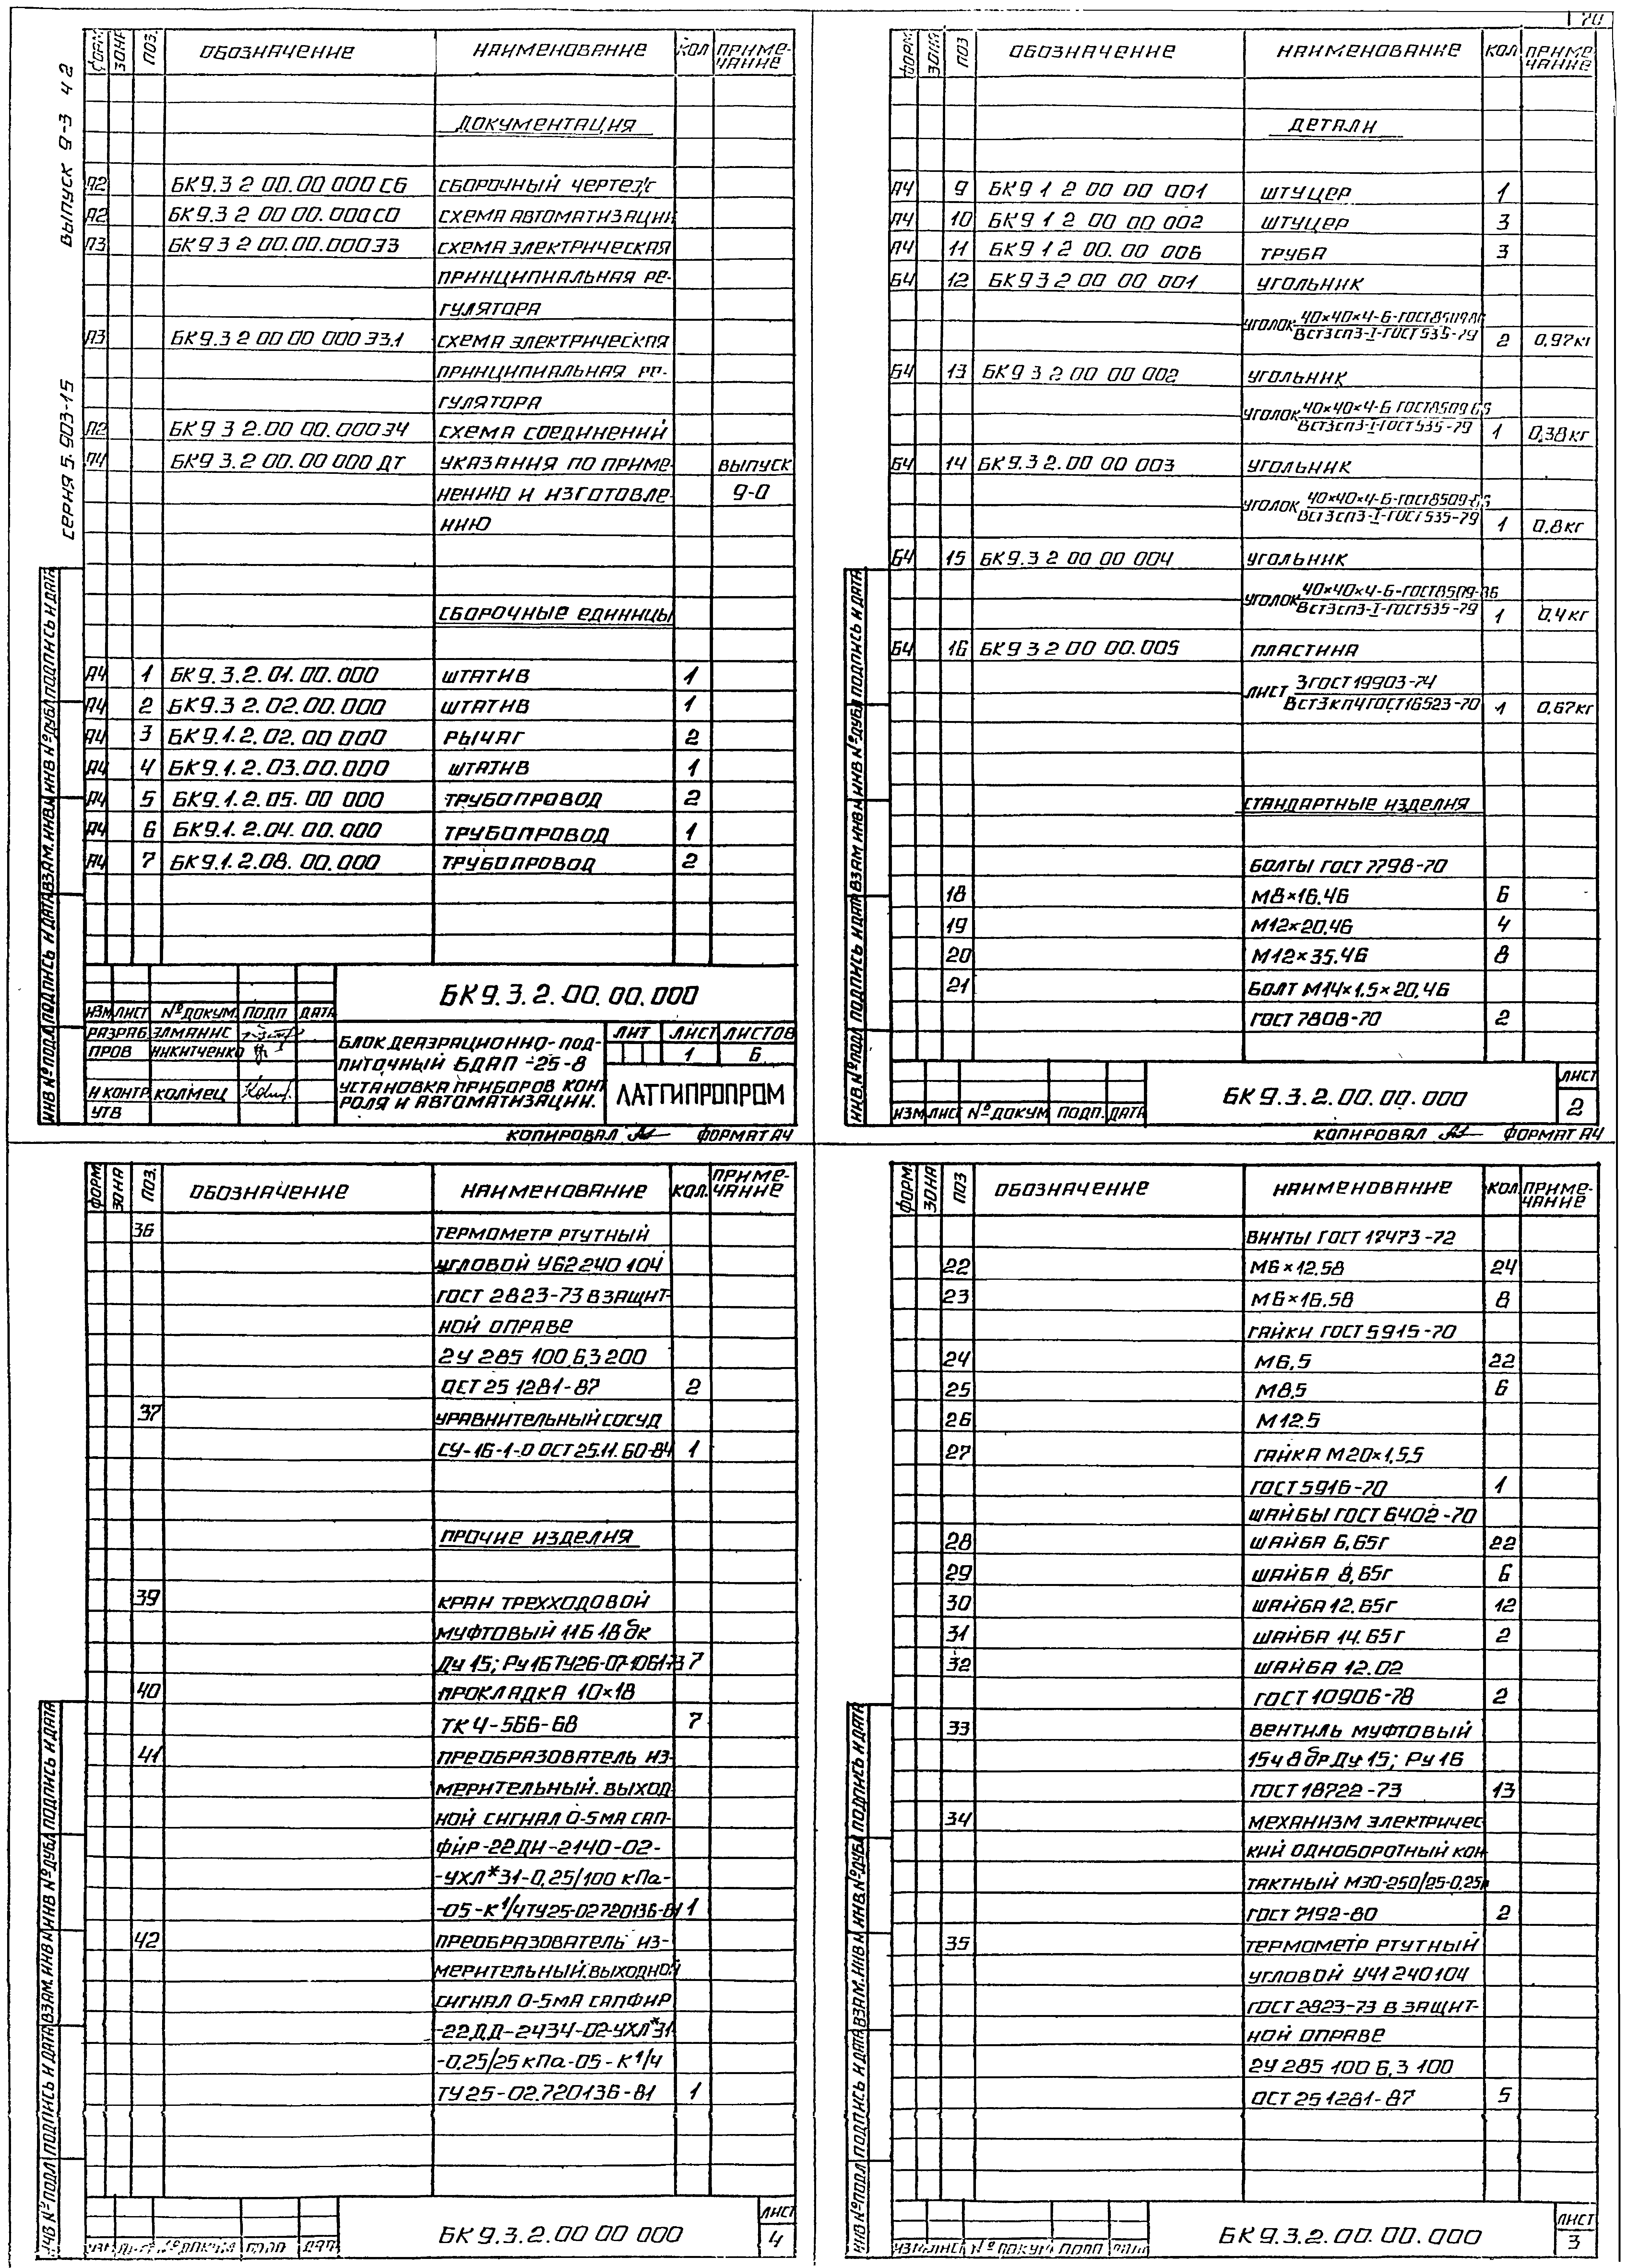 70
СЕРИЯ 5.903-15 ВЫПУСК 9-3 Ч.2
ФОРМ ЗОНА ПОЗ. ОБОЗНАЧЕНИЕ НАИМЕНОВАНИЕ КОЛ ПРИМЕ-
ЧАНИЕ
ДОКУМЕНТАЦИЯ
А2 БК9.3 2 00.00 000 СБ СБОРОЧНЫЙ ЧЕРТЕЖ
А2 БК9.3 2 00 00.000 СО СХЕМА АВТОМАТИЗАЦИИ
А3 БК9 3 2 00.00.000 Э3 СХЕМА ЭЛЕКТРИЧЕСКАЯ
ПРИНЦИПИАЛЬНАЯ РЕ-
ГУЛЯТОРА
А3 БК9.3 2 00 00 000 Э3.1 СХЕМА ЭЛЕКТРИЧЕСКАЯ
ПРИНЦИПИАЛЬНАЯ РЕ-
ГУЛЯТОРА
А2 БК9 3 2.00 00.000 Э4 СХЕМА СОЕДИНЕНИЙ
А4 БК9 3.2.00.00 000 ДТ УКАЗАНИЯ ПО ПРИМЕ- ВЫПУСК
НЕНИЮ И ИЗГОТОВЛЕ- 9-0
НИЮ
СБОРОЧНЫЕ ЕДИНИЦЫ
А4 1 БК9.3.2.01.00.000 ШТАТИВ 1
А4 2 БК9.3 2.02.00.000 ШТАТИВ 1
А4 3 БК9.1.2.02.00 000 РЫЧАГ 2
А4 4 БК9.1.2.03.00.000 ШТАТИВ 1
А4 5 БК9.1.2.05.00 000 ТРУБОПРОВОД 2
А4 6 БК9.1.2.04.00.000 ТРУБОПРОВОД 1
А4 7 БК9.1.2.08.00.000 ТРУБОПРОВОД 2
ИНВ.№ПОДЛ ПОДПИСЬ И ДАТА ВЗАМ.ИНВ.№ ИНВ №ДУБЛ ПОДПИСЬ И ДАТА
БК9.3.2.00.00.000
ИЗМ ЛИСТ №ДОКУМ. ПОДП ДАТА
РАЗРАБ. ЭЛМАНИС
ПРОВ НИКИТЧЕНКО
Н КОНТР КОЛМЕЦ
УТВ
БЛОК ДЕАЭРАЦИОННО-ПОД-
ПИТОЧНЫЙ БДАП-25-8
УСТАНОВКА ПРИБОРОВ КОНТ
РОЛЯ И АВТОМАТИЗАЦИИ.
ЛИТ ЛИСТ ЛИСТОВ
1 6
ЛАТГИПРОПРОМ
КОПИРОВАЛ ФОРМАТ А4
ФОРМ. ЗОНА ПОЗ ОБОЗНАЧЕНИЕ НАИМЕНОВАНИЕ КОЛ ПРИМЕ-
ЧАНИЕ
ДЕТАЛИ
А4 9 БК9 1 2 00 00 001 ШТУЦЕР 1
А4 10 БК9 1 2 00 00 002 ШТУЦЕР 3
А4 11 БК9 1 2 00. 00 006 ТРУБА 3
БЧ 12 БК9 3 2 00 00 001 УГОЛЬНИК
УГОЛОК 40×40×4-Б-ГОСТ8509-86
ВСт3сп3-I-ГОСТ535-79 2 0,97кг
БЧ 13 БК9 3 2 00 00 002 УГОЛЬНИК
УГОЛОК 40×40×4-Б ГОСТ8509 86
ВСт3сп3-I-ГОСТ535-79 1 0,38кг
БЧ 14 БК9.3 2.00 00 003 УГОЛЬНИК
УГОЛОК 40×40×4-Б-ГОСТ8509-86
ВСт3сп3-I-ГОСТ535-79 1 0,8кг
БЧ 15 БК9.3 2 00 00 004 УГОЛЬНИК
УГОЛОК 40×40×4-Б-ГОСТ8509-86
ВСт3сп3-I-ГОСТ535-79 1 0,4кг
БЧ 16 БК9 3 2 00 00.005 ПЛАСТИНА
ЛИСТ 3 ГОСТ 19903-74
ВСт3кп4 ГОСТ16523-70 1 0,67кг
СТАНДАРТНЫЕ ИЗДЕЛИЯ
БОЛТЫ ГОСТ 7798-70
18 М8×16.46 6
19 М12×20.46 4
20 М12×35.46 8
21 БОЛТ М14×1,5×20.46
ГОСТ 7808-70 2
ИНВ.№ПОДЛ ПОДПИСЬ И ДАТА ВЗАМ ИНВ № ИНВ №ДУБЛ ПОДПИСЬ И ДАТА
ИЗМ ЛИСТ №ДОКУМ ПОДП. ДАТА БК9.3.2.00.00.000 ЛИСТ
2
КОПИРОВАЛ ФОРМАТ А4
ФОРМ ЗОНА ПОЗ. ОБОЗНАЧЕНИЕ НАИМЕНОВАНИЕ КОЛ. ПРИМЕ-
ЧАНИЕ
36 ТЕРМОМЕТР РТУТНЫЙ
УГЛОВОЙ У62 240 104
ГОСТ 2823-73 В ЗАЩИТ-
НОЙ ОПРАВЕ
2У 285 100 6,3 200
ОСТ 25 1281-87 2
37 УРАВНИТЕЛЬНЫЙ СОСУД
СУ-16-1-0 ОСТ25.11.60-84 1
ПРОЧИЕ ИЗДЕЛИЯ
39 КРАН ТРЕХХОДОВОЙ
МУФТОВЫЙ 11Б 18 бк
Ду 15; Ру 16 ТУ26-07-1061-73 7
40 ПРОКЛАДКА 10×18
ТК 4-566-68 7
41 ПРЕОБРАЗОВАТЕЛЬ ИЗ-
МЕРИТЕЛЬНЫЙ. ВЫХОД
НОЙ СИГНАЛ 0-5 МА САП-
ФИР-22ДИ-2140-02-
-УХЛ*31-0,25/100 кПа-
-05-К1/4 ТУ25-02720136-81 1
42 ПРЕОБРАЗОВАТЕЛЬ ИЗ-
МЕРИТЕЛЬНЫЙ. ВЫХОДНОЙ
СИГНАЛ 0-5 МА САПФИР
-22ДД-2434-02-УХЛ*31
-0,25/25 кПа-05-К1/4
ТУ 25-02.720136-81 1
ИНВ №ПОДЛ ПОДПИСЬ И ДАТА ВЗАМ.ИНВ № ИНВ №ДУБЛ ПОДПИСЬ И ДАТА
ИЗМ ЛИСТ №ДОКУМ ПОДП ДАТА БК9.3.2.00 00 000 ЛИСТ
4
ФОРМ. ЗОНА ПОЗ ОБОЗНАЧЕНИЕ НАИМЕНОВАНИЕ КОЛ ПРИМЕ-
ЧАНИЕ
ВИНТЫ ГОСТ 17473-72
22 М6×12.58 24
23 М6×16.58 8
ГАЙКИ ГОСТ 5915-70
24 М6,5 22
25 М8,5 6
26 М12.5
27 ГАЙКА М20×1,5,5
ГОСТ 5916-70 1
ШАЙБЫ ГОСТ 6402-70
28 ШАЙБА 6,65Г 22
29 ШАЙБА 8,65Г 6
30 ШАЙБА 12.65Г 12
31 ШАЙБА 14.65Г 2
32 ШАЙБА 12.02
ГОСТ 10906-78 2
33 ВЕНТИЛЬ МУФТОВЫЙ
15ч 8 бр Ду 15; Ру 16
ГОСТ 18722-73 13
34 МЕХАНИЗМ ЭЛЕКТРИЧЕС
КИЙ ОДНОБОРОТНЫЙ КОН
ТАКТНЫЙ МЭО-250/25-0,25
ГОСТ 7192-80 2
35 ТЕРМОМЕТР РТУТНЫЙ
УГЛОВОЙ У41 240 104
ГОСТ 2823-73 В ЗАЩИТ-
НОЙ ОПРАВЕ
2У 285 100 6,3 100
ОСТ 25 1281-87 5
ИНВ №ПОДЛ ПОДПИСЬ И ДАТА ВЗАМ.ИНВ № ИНВ.№ДУБЛ ПОДПИСЬ И ДАТА
ИЗМ ЛИСТ №ДОКУМ ПОДП ДАТА БК9.3.2.00.00.000 ЛИСТ
3